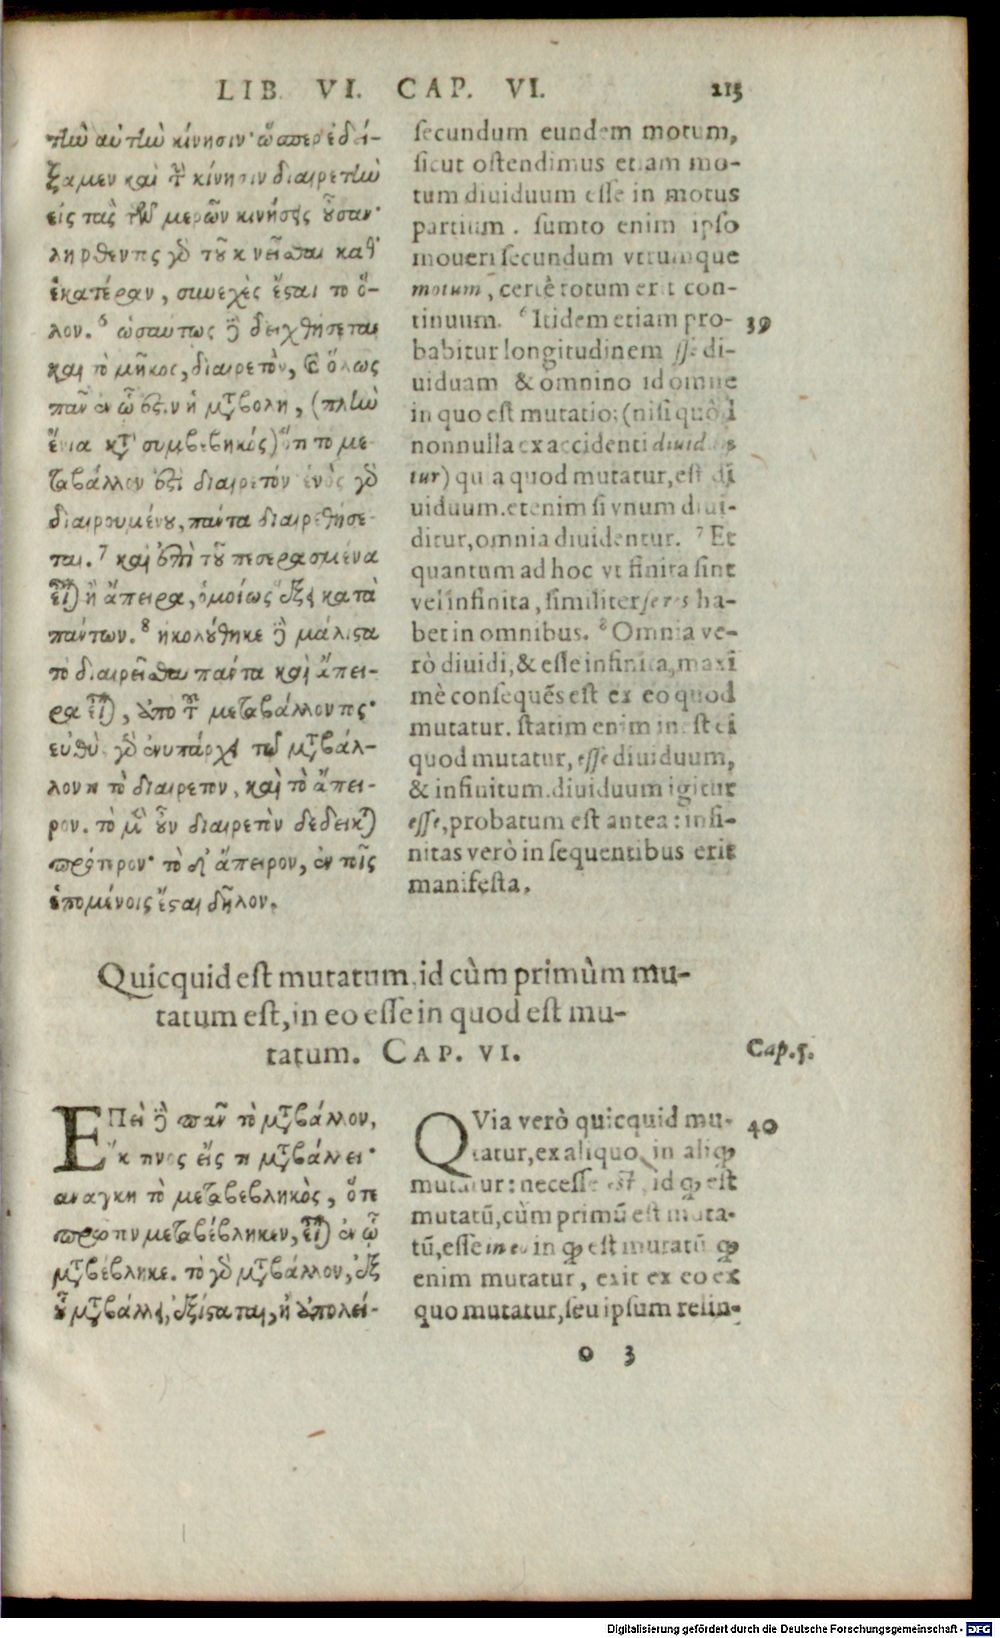 LIB. VI. CAP. VI. 215
τὴν αὐτὴν κίνησιν· ὥσπερ ἐδεί-
ξαμεν καὶ τὴν κίνησιν διαιρετὴν
εἰς τὰς τῶν μερῶν κινήσεις οὖσαν·
ληφθέντος γὰρ τοῦ κινεῖσθαι καθ'
ἑκατέραν, συνεχὲς ἔσται τὸ ὅ-
λον. 6 ὡσαύτως δὲ δειχθήσεται
καὶ τὸ μῆκος, διαιρετὸν, καὶ ὅλως
πᾶν ἐν ᾧ ἐστιν ἡ μεταβολὴ, (πλὴν
ἔνια κατὰ συμβεβηκός) ὅτι τὸ με-
ταβάλλον ἐστὶ διαιρετόν· ἑνὸς γὰρ
διαιρουμένου, πάντα διαιρεθήσε-
ται. 7 καὶ ἐπὶ τοῦ πεπερασμένα
εἶναι ἢ ἄπειρα, ὁμοίως ἕξει κατὰ
πάντων. 8 ἠκολούθηκε δὲ μάλιστα
τὸ διαιρεῖσθαι πάντα καὶ ἄπει-
ρα εἶναι, ἀπὸ τοῦ μεταβάλλοντος·
εὐθὺς γὰρ ἐνυπάρχει τῷ μεταβάλ-
λοντι τὸ διαιρετὸν, καὶ τὸ ἄπει-
ρον. τὸ μὲν οὖν διαιρετὸν δέδεικται
πρότερον· τὸ δ' ἄπειρον, ἐν τοῖς
ἑπομένοις ἔσται δῆλον.
secundum eundem motum,
sicut ostendimus etiam mo-
tum diuiduum esse in motus
partium. sumto enim ipso
moueri secundum vtrumque
motum, certè totum erit con-
tinuum. 6 Itidem etiam pro- 39
babitur longitudinem esse di-
uiduam & omnino id omne
in quo est mutatio: (nisi quòd
nonnulla ex accidenti diuidu
tur) quia quod mutatur, est di
uiduum. etenim si vnum diui-
ditur, omnia diuidentur. 7 Et
quantum ad hoc vt finita sint
vel infinita, similiter res ha-
bet in omnibus. 8 Omnia ve-
rò diuidi, & esse infinita, maxi
mè consequēs est ex eo quod
mutatur. statim enim inest ei
quod mutatur, esse diuiduum,
& infinitum. diuiduum igitur
esse, probatum est antea: infi-
nitas verò in sequentibus erit
manifesta.
Quicquid est mutatum, id cùm primùm mu-
tatum est, in eo esse in quod est mu-
tatum. CAP. VI. Cap. 5.
ΕΠεὶ δὲ πᾶν τὸ μεταβάλλον,
ἔκ τινος εἴς τι μεταβάλλει·
ἀνάγκη τὸ μεταβεβληκὸς, ὅτε
πρῶτον μεταβέβληκεν, εἶναι ἐν ᾧ
μεταβέβληκε. τὸ γὰρ μεταβάλλον, ἐξ
οὗ μεταβάλλει, ἐξίσταται, ἢ ἀπολεί-
QVia verò quicquid mu- 40
tatur, ex aliquo in aliqđ
mutatur: necesse est, id qđ est
mutatū, cùm primū est muta-
tū, esse in eo in qđ est mutatū qđ
enim mutatur, exit ex eo ex
quo mutatur, seu ipsum relin-
o 3
Digitalisierung gefördert durch die Deutsche Forschungsgemeinschaft - DFG